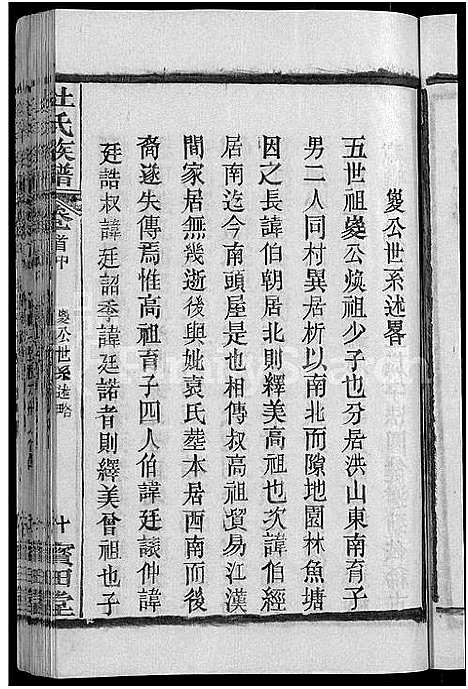 夔公世系述畧
五世祖夔公煥祖少子也分居洪山東南育子
男二人同村異居析以南北而隙地園林魚塘
因之長諱伯朝居北則釋美高祖也次諱伯經
居南迄今南頭屋是也相傳叔高祖貿易江漢
間家居無幾逝後與妣袁氏塟本居西南而後
裔遂失傳焉惟高祖育子四人伯諱廷議仲諱
廷誥叔諱廷詔季諱廷諾者則繹美曾祖也子
杜氏族譜
卷首中
夔公世系述略
十
寳田堂